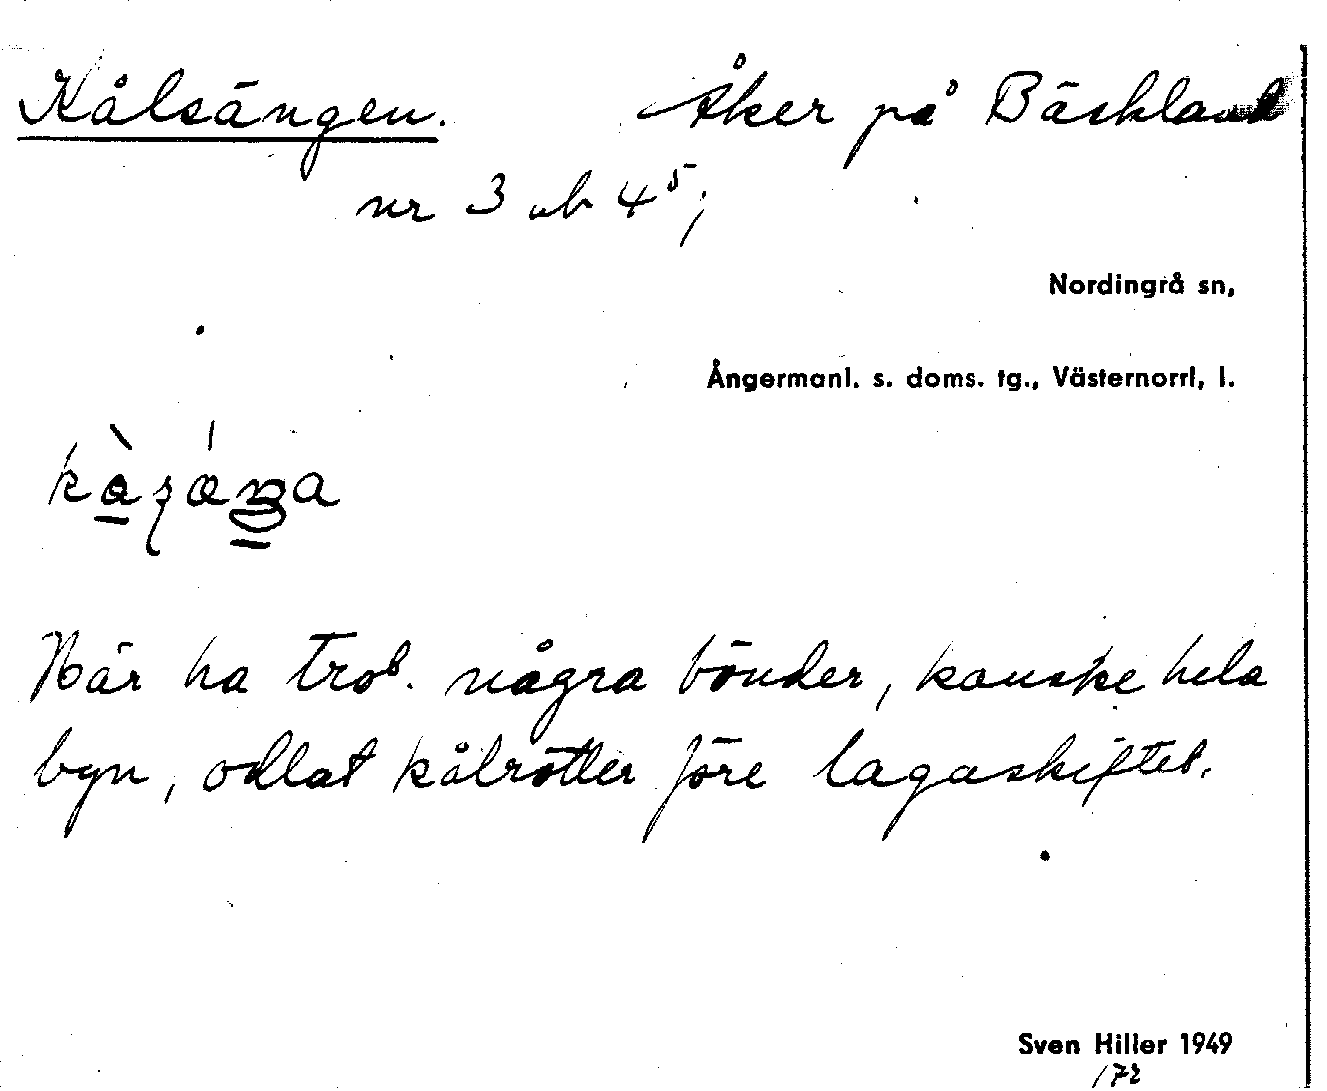 Kålsängen. Åker på Bäskland
nr 3 ub 4⁵;
Nordingrå sn,
Ångermanl. s. doms. tg., Västernorrl, l.
Här ha trol. några bönder, kanske hela
byn, odlat kålrötter före lagaskiftet.
Sven Hiller 1949
172